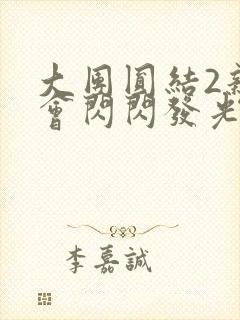 大團圓結2新
會閃閃發光
李嘉誠